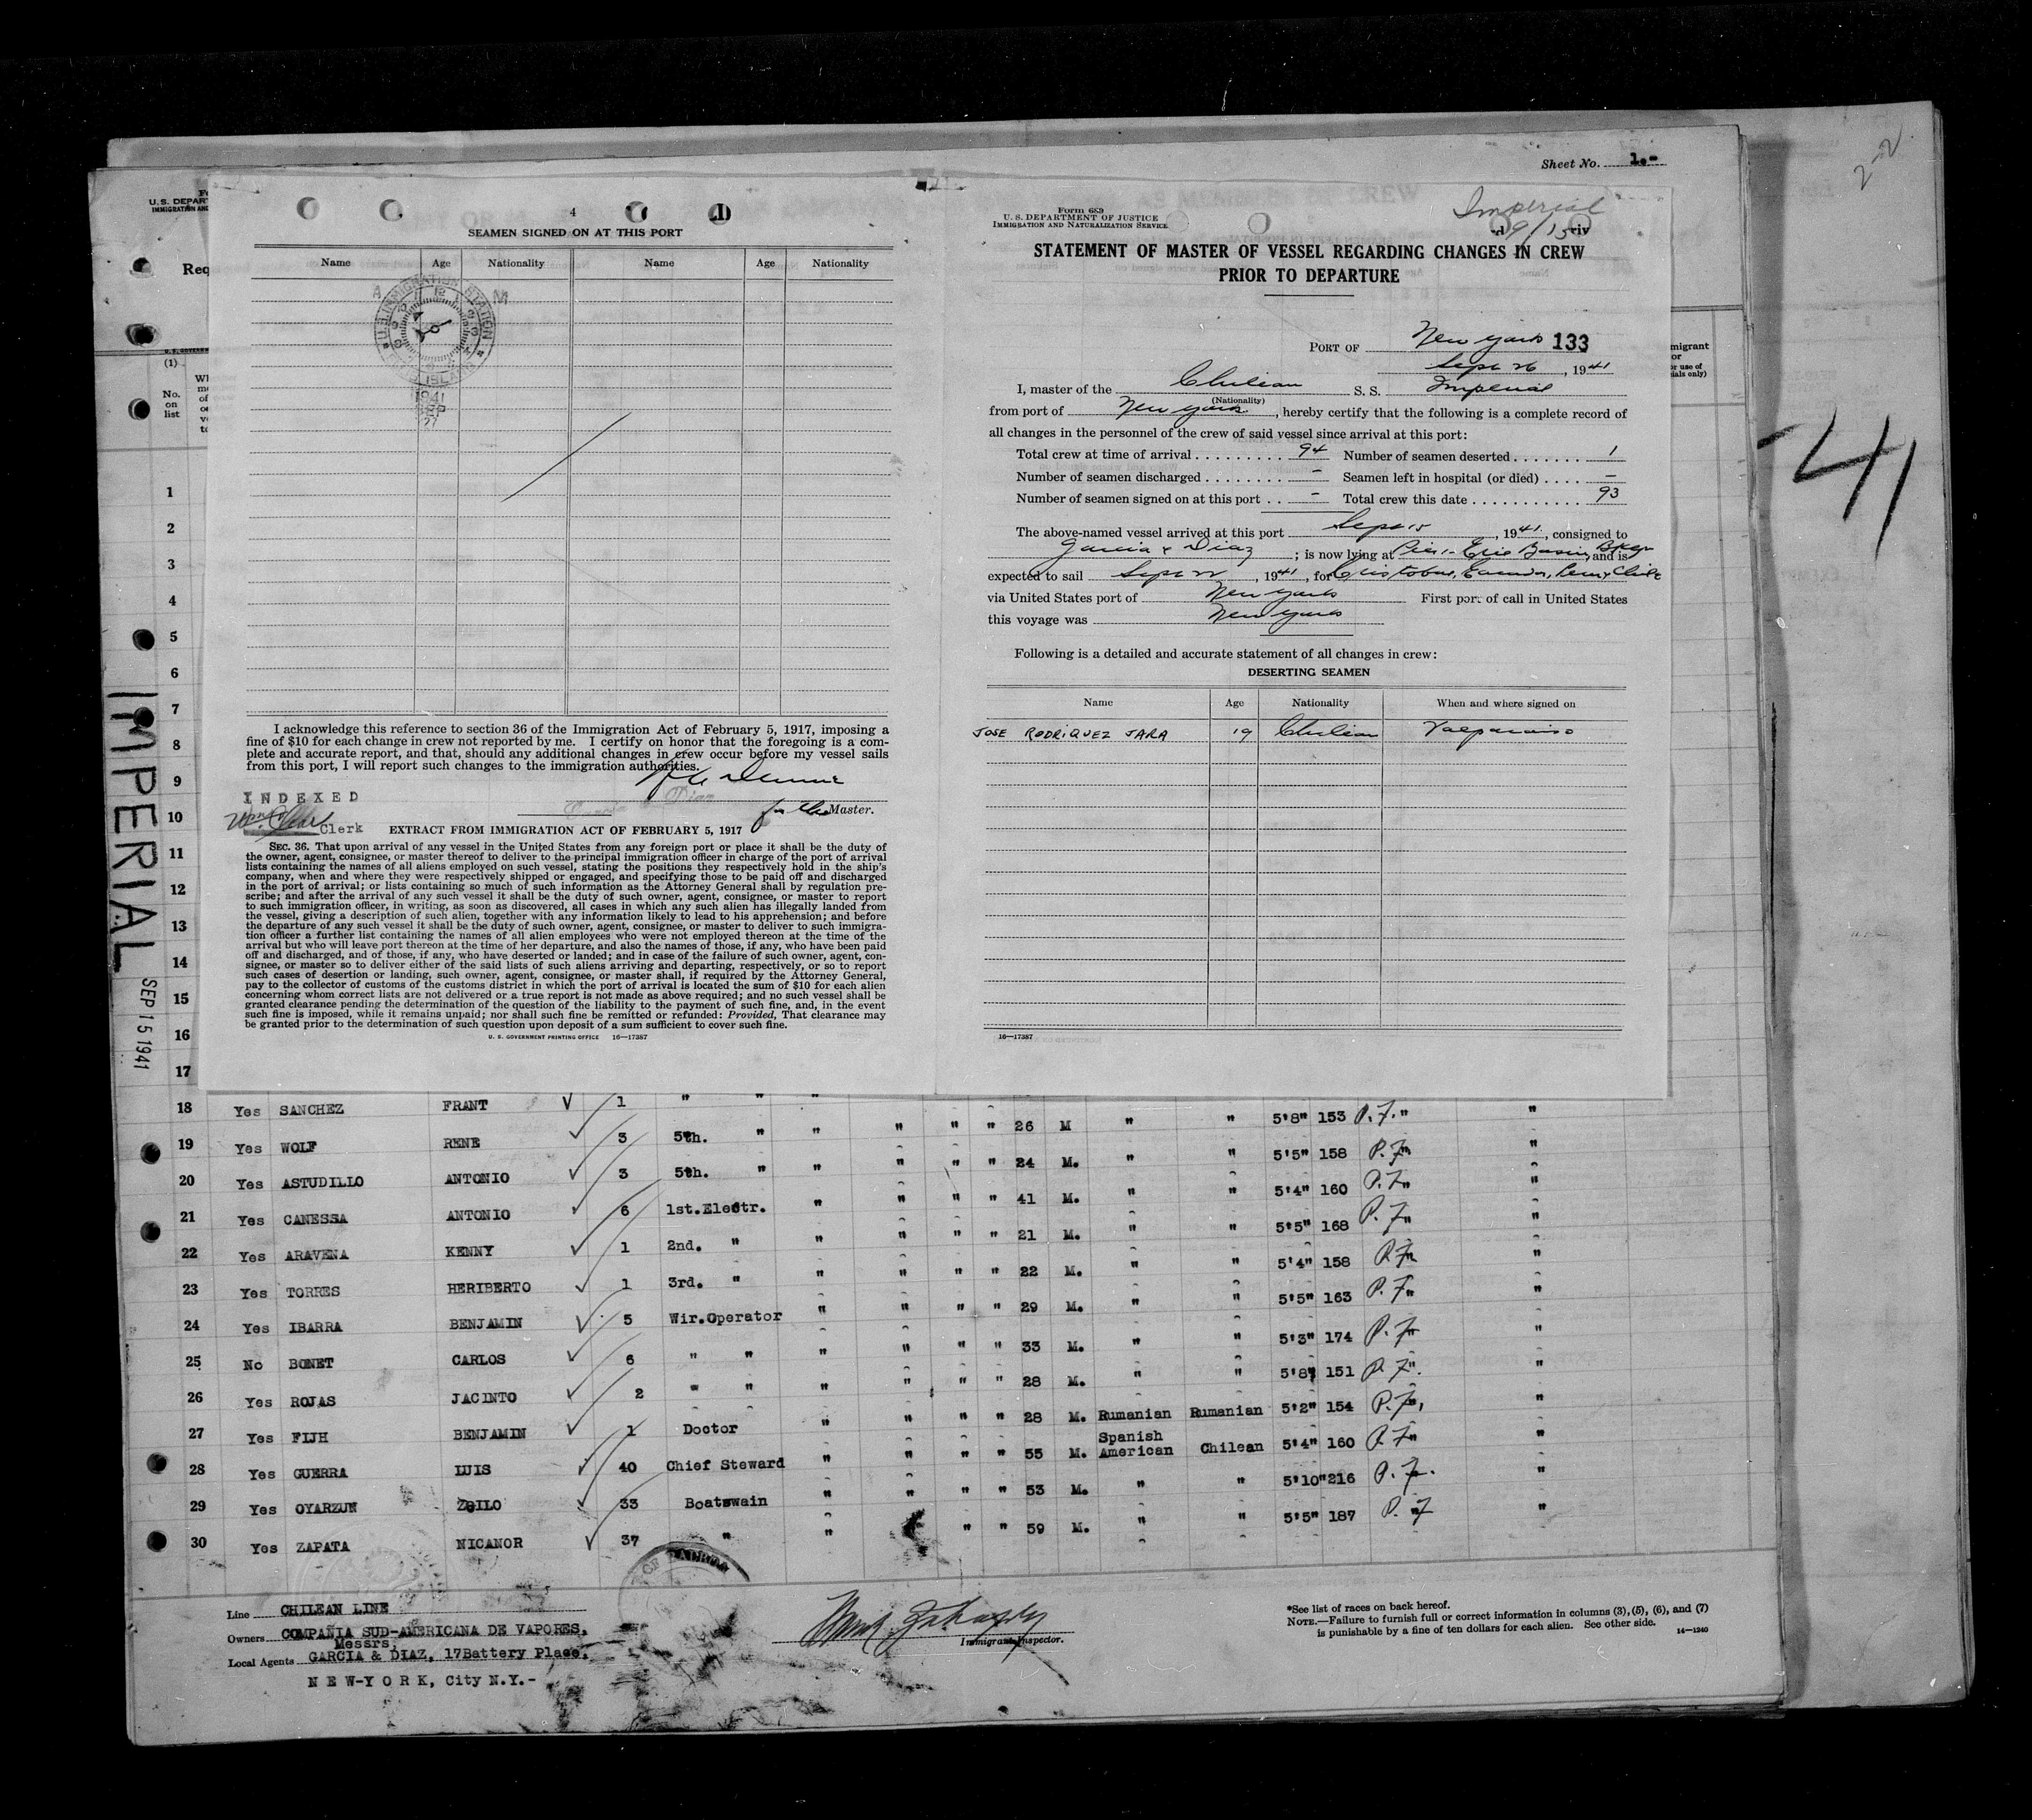 Sheet No. 1.-
22
U.S. DEPAR
IMMIGRATION AND
Req
(1)
No.
on
list
4
SEAMEN SIGNED ON AT THIS PORT
Name Age Nationality Name Age Nationality
A M
U.S. IMMIGRATION STATION
1941
SEP
27
I acknowledge this reference to section 36 of the Immigration Act of February 5, 1917, imposing a
fine of $10 for each change in crew not reported by me. I certify on honor that the foregoing is a com-
plete and accurate report, and that, should any additional changes in crew occur before my vessel sails
from this port, I will report such changes to the immigration authorities.
for the Master.
INDEXED
Clerk
EXTRACT FROM IMMIGRATION ACT OF FEBRUARY 5, 1917
SEC. 36. That upon arrival of any vessel in the United States from any foreign port or place it shall be the duty of
the owner, agent, consignee, or master thereof to deliver to the principal immigration officer in charge of the port of arrival
lists containing the names of all aliens employed on such vessel, stating the positions they respectively hold in the ship's
company, when and where they were respectively shipped or engaged, and specifying those to be paid off and discharged
in the port of arrival; or lists containing so much of such information as the Attorney General shall by regulation pre-
scribe; and after the arrival of any such vessel it shall be the duty of such owner, agent, consignee, or master to report
to such immigration officer, in writing, as soon as discovered, all cases in which any such alien has illegally landed from
the vessel, giving a description of such alien, together with any information likely to lead to his apprehension; and before
the departure of any such vessel it shall be the duty of such owner, agent, consignee, or master to deliver to such immigra-
tion officer a further list containing the names of all alien employees who were not employed thereon at the time of the
arrival but who will leave port thereon at the time of her departure, and also the names of those, if any, who have been paid
off and discharged, and of those, if any, who have deserted or landed; and in case of the failure of such owner, agent, con-
signee, or master so to deliver either of the said lists of such aliens arriving and departing, respectively, or so to report
such cases of desertion or landing, such owner, agent, consignee, or master shall, if required by the Attorney General,
pay to the collector of customs of the customs district in which the port of arrival is located the sum of $10 for each alien
concerning whom correct lists are not delivered or a true report is not made as above required; and no such vessel shall be
granted clearance pending the determination of the question of the liability to the payment of such fine, and, in the event
such fine is imposed, while it remains unpaid; nor shall such fine be remitted or refunded: Provided, That clearance may
be granted prior to the determination of such question upon deposit of a sum sufficient to cover such fine.
U. S. GOVERNMENT PRINTING OFFICE 16—17387
Form 689
U. S. DEPARTMENT OF JUSTICE
IMMIGRATION AND NATURALIZATION SERVICE
Imperial
9/15
STATEMENT OF MASTER OF VESSEL REGARDING CHANGES IN CREW
PRIOR TO DEPARTURE
PORT OF New York 133
Sept 26, 1941
I, master of the Chilean S. S. Imperial
(Nationality)
from port of New York, hereby certify that the following is a complete record of
all changes in the personnel of the crew of said vessel since arrival at this port:
Total crew at time of arrival 94 Number of seamen deserted 1
Number of seamen discharged - Seamen left in hospital (or died) -
Number of seamen signed on at this port - Total crew this date 93
The above-named vessel arrived at this port Sept 15, 1941, consigned to
Garcia & Diaz; is now lying at Pier 1 - Erie Basin, Bklyn and is
expected to sail Sept 22, 1941, for Cristobal, Ecuador, Peru & Chile
via United States port of New York First port of call in United States
this voyage was New York
Following is a detailed and accurate statement of all changes in crew:
DESERTING SEAMEN
Name Age Nationality When and where signed on
JOSE RODRIQUEZ JARA 19 Chilean Valparaiso
16—17387
migrant
or
or use of
ials only)
41
IMPERIAL
SEP 15 1941
1
2
3
4
5
6
7
8
9
10
11
12
13
14
15
16
17
18 Yes SANCHEZ FRANT 1 " " "
19 Yes WOLF RENE 3 5th. " " " " " 26 M " " 5'8" 153 P.F. " "
20 Yes ASTUDILLO ANTONIO 3 5th. " " " " " 24 M. " " 5'5" 158 P.F. "
21 Yes CANESSA ANTONIO 6 1st.Electr. " " " " 41 M. " " 5'4" 160 P.F. " "
22 Yes ARAVENA KENNY 1 2nd. " " " " " 21 M. " " 5'5" 168 P.F. " "
23 Yes TORRES HERIBERTO 1 3rd. " " " " " 22 M. " " 5'4" 158 P.F. "
24 Yes IBARRA BENJAMIN 5 Wir.Operator " " " " 29 M. " " 5'5" 163 P.F. " "
25 No BONET CARLOS 6 " " " " " " 33 M. " " 5'3" 174 P.F. "
26 Yes ROJAS JACINTO 2 " " " " " " 28 M. " " 5'8" 151 P.F. " "
27 Yes FIJH BENJAMIN 1 Doctor " " " " 28 M. Rumanian Rumanian 5'2" 154 P.F. "
28 Yes GUERRA LUIS 40 Chief Steward " " " " 55 M. Spanish American Chilean 5'4" 160 P.F. " "
29 Yes OYARZUN ZOILO 33 Boatswain " " " " 53 M. " " 5'10" 216 P.F. "
30 Yes ZAPATA NICANOR 37 " " " " 59 M. " " 5'5" 187 P.F. "
Line CHILEAN LINE
Owners COMPAÑIA SUD-AMERICANA DE VAPORES.
Messrs.
Local Agents GARCIA & DIAZ, 17Battery Place.
NEW-YORK, City N.Y.-
Immigrant Inspector.
*See list of races on back hereof.
NOTE.—Failure to furnish full or correct information in columns (3), (5), (6), and (7)
is punishable by a fine of ten dollars for each alien. See other side.
14—1240